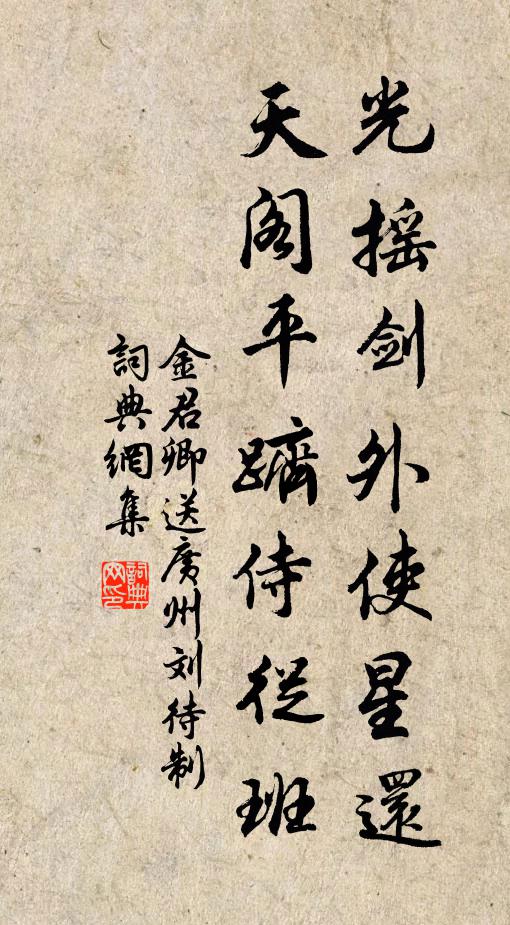 光摇剑外使星還
天阁平躋侍從班
金君卿送廣州刘待制
詞典網集
詞典网印